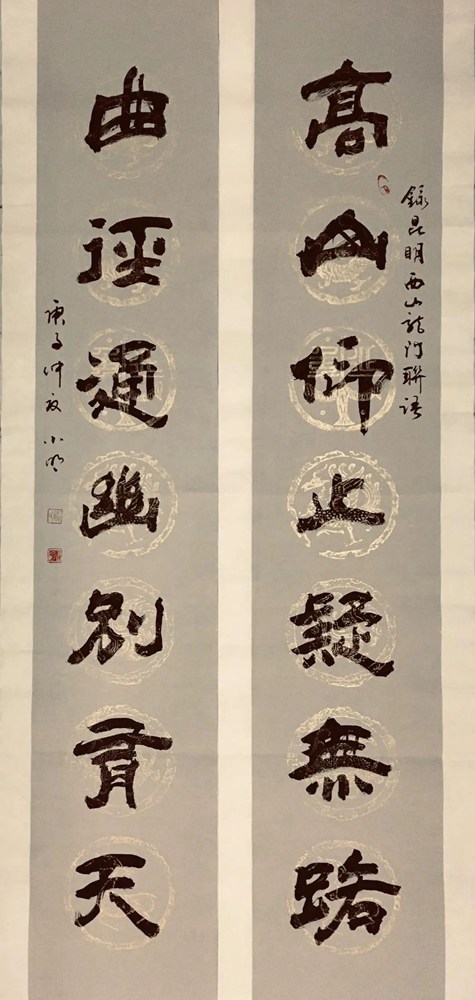 高山仰止疑無路
録昆明西山龍門聯語
曲徑通幽別有天
庚子仲夏小明